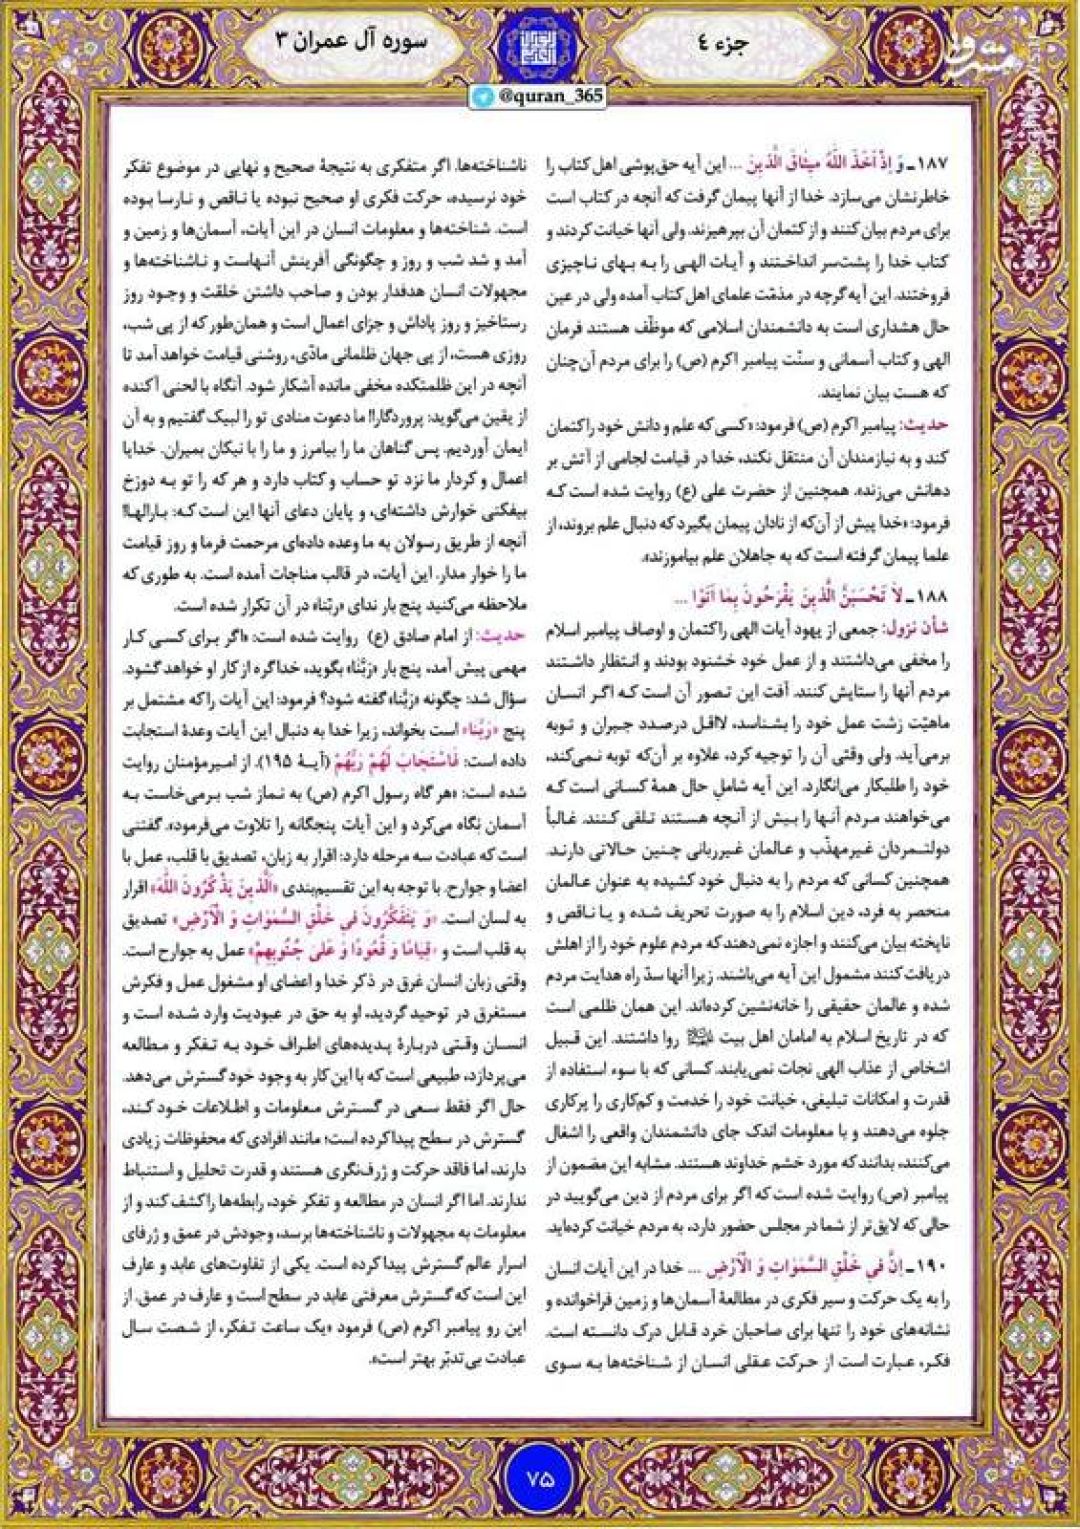 جزء ۴
سوره آل عمران ۳
مشرق
@quran_365
۱۸۷ـ وَ اِذْ اَخَذَ اللّٰهُ میثاقَ الَّذینَ ... این آیه حق‌پوشی اهل کتاب را
خاطرنشان می‌سازد. خدا از آنها پیمان گرفت که آنچه در کتاب است
برای مردم بیان کنند و از کتمان آن بپرهیزند. ولی آنها خیانت کردند و
کتاب خدا را پشت‌سر انداختند و آیات الهی را به بهای ناچیزی
فروختند. این آیه گرچه در مذمّت علمای اهل کتاب آمده ولی در عین
حال هشداری است به دانشمندان اسلامی که موظّف هستند فرمان
الهی و کتاب آسمانی و سنّت پیامبر اکرم (ص) را برای مردم آن‌چنان
که هست بیان نمایند.
حدیث: پیامبر اکرم (ص) فرمود: «کسی که علم و دانش خود را کتمان
کند و به نیازمندان آن منتقل نکند، خدا در قیامت لجامی از آتش بر
دهانش می‌زند». همچنین از حضرت علی (ع) روایت شده است که
فرمود: «خدا پیش از آن‌که از نادان پیمان بگیرد که دنبال علم بروند، از
علما پیمان گرفته است که به جاهلان علم بیاموزند».
۱۸۸ـ لاٰ تَحْسَبَنَّ الَّذینَ یَفْرَحُونَ بِمٰا اَتَوْا ...
شأن نزول: جمعی از یهود آیات الهی را کتمان و اوصاف پیامبر اسلام
را مخفی می‌داشتند و از عمل خود خشنود بودند و انتظار داشتند
مردم آنها را ستایش کنند. آفت این تصور آن است که اگر انسان
ماهیّت زشت عمل خود را بشناسد، لااقل درصدد جبران و توبه
برمی‌آید. ولی وقتی آن را توجیه کرد، علاوه بر آن‌که توبه نمی‌کند،
خود را طلبکار می‌انگارد. این آیه شامل حال همهٔ کسانی است که
می‌خواهند مردم آنها را بیش از آنچه هستند تلقی کنند. غالباً
دولتمردان غیرمهذّب و عالمان غیرربانی چنین حالاتی دارند.
همچنین کسانی که مردم را به دنبال خود کشیده به عنوان عالمان
منحصر به فرد، دین اسلام را به صورت تحریف شده و یا ناقص و
ناپخته بیان می‌کنند و اجازه نمی‌دهند که مردم علوم خود را از اهلش
دریافت کنند مشمول این آیه می‌باشند. زیرا آنها سدّ راه هدایت مردم
شده و عالمان حقیقی را خانه‌نشین کرده‌اند. این همان ظلمی است
که در تاریخ اسلام به امامان اهل بیت روا داشتند. این قبیل
اشخاص از عذاب الهی نجات نمی‌یابند. کسانی که با سوء استفاده از
قدرت و امکانات تبلیغی، خیانت خود را خدمت و کم‌کاری را پرکاری
جلوه می‌دهند و با معلومات اندک جای دانشمندان واقعی را اشغال
می‌کنند، بدانند که مورد خشم خداوند هستند. مشابه این مضمون از
پیامبر (ص) روایت شده است که اگر برای مردم از دین می‌گویید در
حالی که لایق‌تر از شما در مجلس حضور دارد، به مردم خیانت کرده‌اید.
۱۹۰ـ اِنَّ فی خَلْقِ السَّمٰوٰاتِ وَ الْاَرْضِ ... خدا در این آیات انسان
را به یک حرکت و سیر فکری در مطالعهٔ آسمان‌ها و زمین فراخوانده و
نشانه‌های خود را تنها برای صاحبان خرد قابل درک دانسته است.
فکر، عبارت است از حرکت عقلی انسان از شناخته‌ها به سوی
ناشناخته‌ها. اگر متفکری به نتیجهٔ صحیح و نهایی در موضوع تفکر
خود نرسیده، حرکت فکری او صحیح نبوده یا ناقص و نارسا بوده
است. شناخته‌ها و معلومات انسان در این آیات، آسمان‌ها و زمین و
آمد و شد شب و روز و چگونگی آفرینش آنهاست و ناشناخته‌ها و
مجهولات انسان هدفدار بودن و صاحب داشتن خلقت و وجود روز
رستاخیز و روز پاداش و جزای اعمال است و همان‌طور که از پی شب،
روزی هست، از پی جهان ظلمانی مادّی، روشنی قیامت خواهد آمد تا
آنچه در این ظلمتکده مخفی مانده آشکار شود. آنگاه با لحنی آکنده
از یقین می‌گوید: پروردگارا! ما دعوت منادی تو را لبیک گفتیم و به آن
ایمان آوردیم. پس گناهان ما را بیامرز و ما را با نیکان بمیران. خدایا
اعمال و کردار ما نزد تو حساب و کتاب دارد و هر که را تو به دوزخ
بیفکنی خوارش داشته‌ای، و پایان دعای آنها این است که: بارالها!
آنچه از طریق رسولان به ما وعده داده‌ای مرحمت فرما و روز قیامت
ما را خوار مدار. این آیات، در قالب مناجات آمده است. به طوری که
ملاحظه می‌کنید پنج بار ندای «ربّنا» در آن تکرار شده است.
حدیث: از امام صادق (ع) روایت شده است: «اگر برای کسی کار
مهمی پیش آمد، پنج بار «رَبَّنا» بگوید، خدا گره از کار او خواهد گشود.
سؤال شد: چگونه «رَبَّنا» گفته شود؟ فرمود: این آیات را که مشتمل بر
پنج «رَبَّنا» است بخواند، زیرا خدا به دنبال این آیات وعدهٔ استجابت
داده است: فَاسْتَجٰابَ لَهُمْ رَبُّهُمْ (آیهٔ ۱۹۵). از امیرمؤمنان روایت
شده است: «هر گاه رسول اکرم (ص) به نماز شب برمی‌خاست به
آسمان نگاه می‌کرد و این آیات پنجگانه را تلاوت می‌فرمود». گفتنی
است که عبادت سه مرحله دارد: اقرار به زبان، تصدیق با قلب، عمل با
اعضا و جوارح. با توجه به این تقسیم‌بندی «اَلَّذینَ یَذْکُرُونَ اللّٰهَ» اقرار
به لسان است. «وَ یَتَفَکَّرُونَ فی خَلْقِ السَّمٰوٰاتِ وَ الْاَرْضِ» تصدیق
به قلب است و «قِیٰامًا وَ قُعُودًا وَ عَلیٰ جُنُوبِهِمْ» عمل به جوارح است.
وقتی زبان انسان غرق در ذکر خدا و اعضای او مشغول عمل و فکرش
مستغرق در توحید گردید، او به حق در عبودیت وارد شده است و
انسان وقتی دربارهٔ پدیده‌های اطراف خود به تفکر و مطالعه
می‌پردازد، طبیعی است که با این کار به وجود خود گسترش می‌دهد.
حال اگر فقط سعی در گسترش معلومات و اطلاعات خود کند،
گسترش در سطح پیدا کرده است؛ مانند افرادی که محفوظات زیادی
دارند، اما فاقد حرکت و ژرف‌نگری هستند و قدرت تحلیل و استنباط
ندارند. اما اگر انسان در مطالعه و تفکر خود، رابطه‌ها را کشف کند و از
معلومات به مجهولات و ناشناخته‌ها برسد، وجودش در عمق و ژرفای
اسرار عالم گسترش پیدا کرده است. یکی از تفاوت‌های عابد و عارف
این است که گسترش معرفتی عابد در سطح است و عارف در عمق. از
این رو پیامبر اکرم (ص) فرمود «یک ساعت تفکر، از شصت سال
عبادت بی‌تدبّر بهتر است».
۷۵